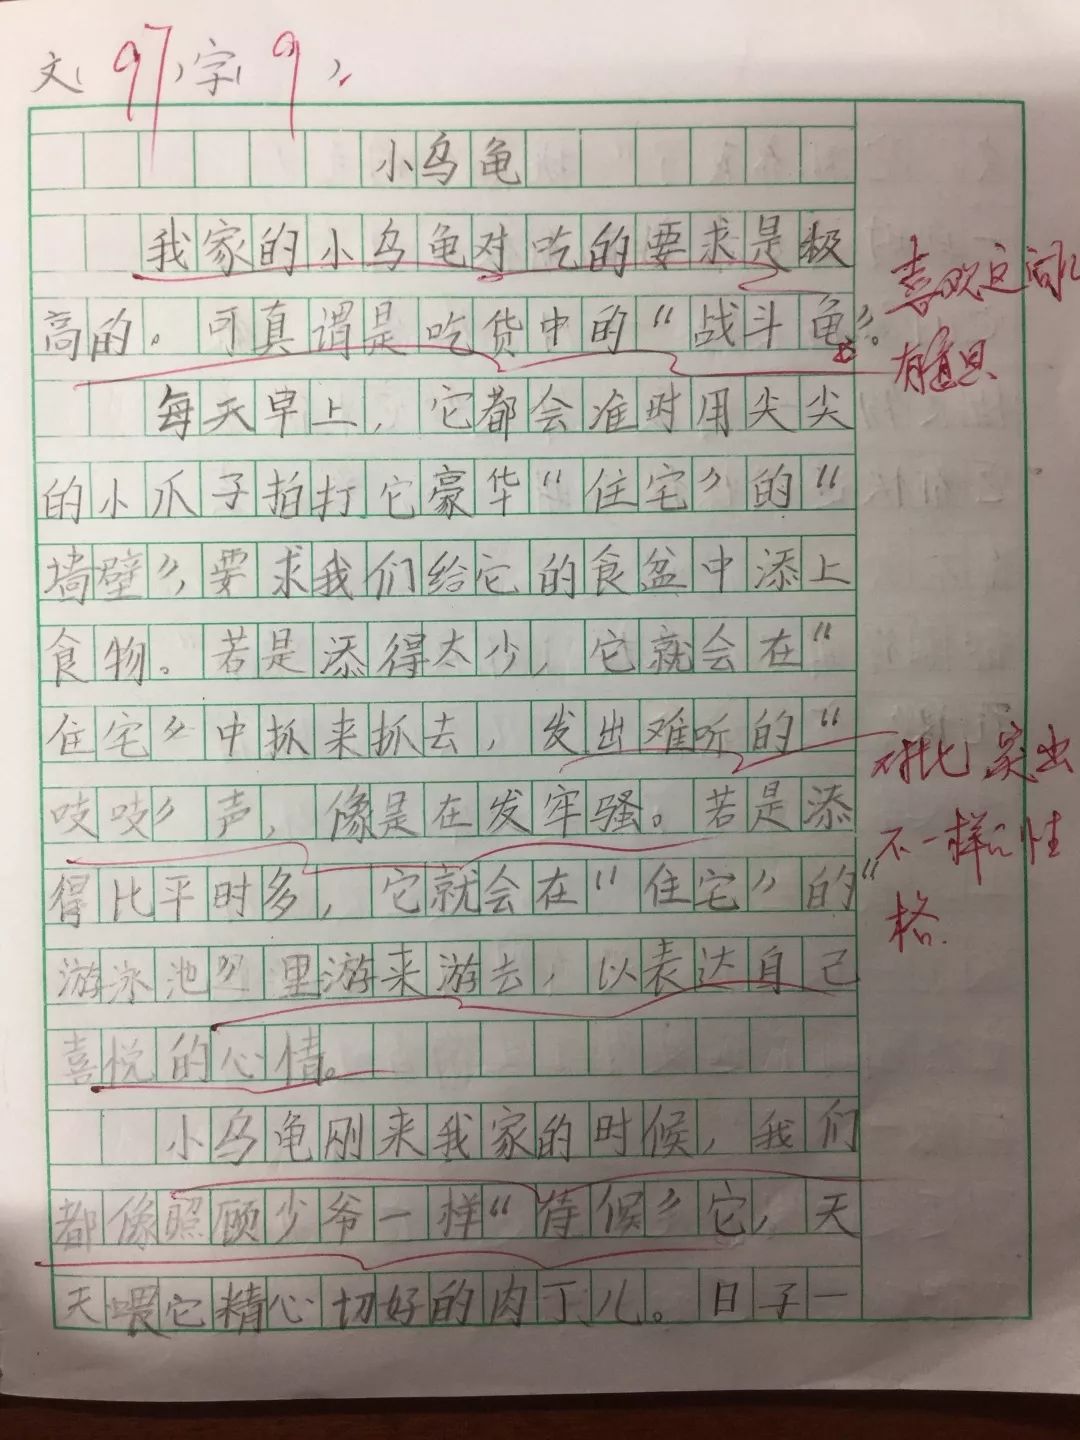 文（97）字（9）
小乌龟
我家的小乌龟对吃的要求是极
高的。可真谓是吃货中的“战斗龟”。
喜欢这词儿
有道具
每天早上，它都会准时用尖尖
的小爪子拍打它豪华“住宅”的“
墙壁”，要求我们给它的食盆中添上
食物。若是添得太少，它就会在“
住宅”中抓来抓去，发出难听的“
吱吱”声，像是在发牢骚。若是添
得比平时多，它就会在“住宅”的“
游泳池”里游来游去，以表达自己
喜悦的心情。
对比，突出
不一样的性
格.
小乌龟刚来我家的时候，我们
都像照顾少爷一样“侍候”它，天
天喂它精心切好的肉丁儿。日子一